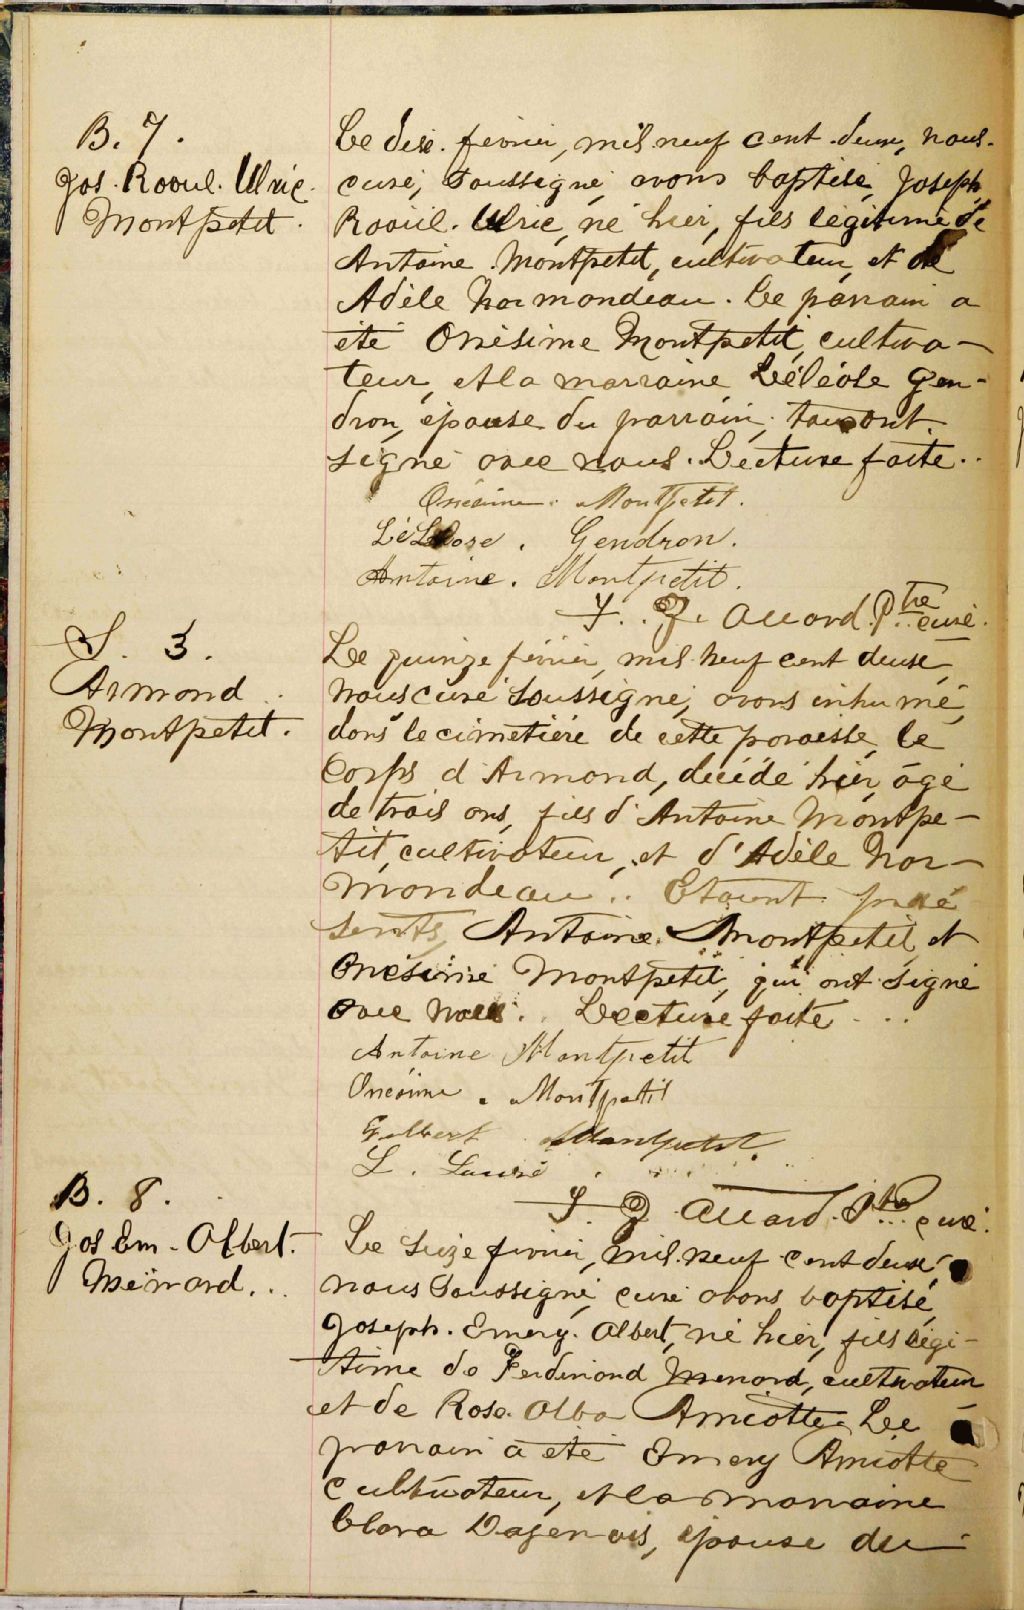 B. 7.
Jos. Raoul. Ulric.
Montpetit.
Le dix. février, mil neuf cent deux, nous.
curé, soussigné, avons baptisé, Joseph,
Raoul. Ulric, né hier, fils légitime de
Antoine Montpetit, cultivateur, et de
Adèle Normondeau. Le parrain a
été Onésime Montpetit, cultiva-
teur, et la marraine Gen-
dron, épouse du parrain, ont
signé avec nous. Lecture faite..
Onésime. Montpetit.
Gendron.
Antoine. Montpetit.
J. Z. Allard. Ptre curé.
S. 3.
Armand
Montpetit.
Le quinze février, mil neuf cent deux,
nous curé soussigné, avons inhumé,
dans le cimetière de cette paroisse, le
Corps d'Armand, décédé hier, âgé
de trois ans, fils d'Antoine Montpe-
tit, cultivateur, et d'Adèle Nor-
mondeau.. Etaient pré
sents, Antoine. Montpetit, et
Onésime Montpetit, qui ont signé
avec nous.. Lecture faite...
Antoine Montpetit
Onésime. Montpetit
Gilbert Montpetit.
L.
J. Z. Allard. Ptre... curé.
B. 8.
Jos Em. Albert.
Ménard...
Le seize février, mil neuf cent deux,
nous soussigné, curé avons baptisé,
Joseph. Emery. Albert, né hier, fils légi-
time de Ferdinand Menard, cultivateur
et de Rose. Alba Amiotte. Le
parrain a été Emery Amiotte
cultivateur, et la marraine
Clara Dagenais, épouse du